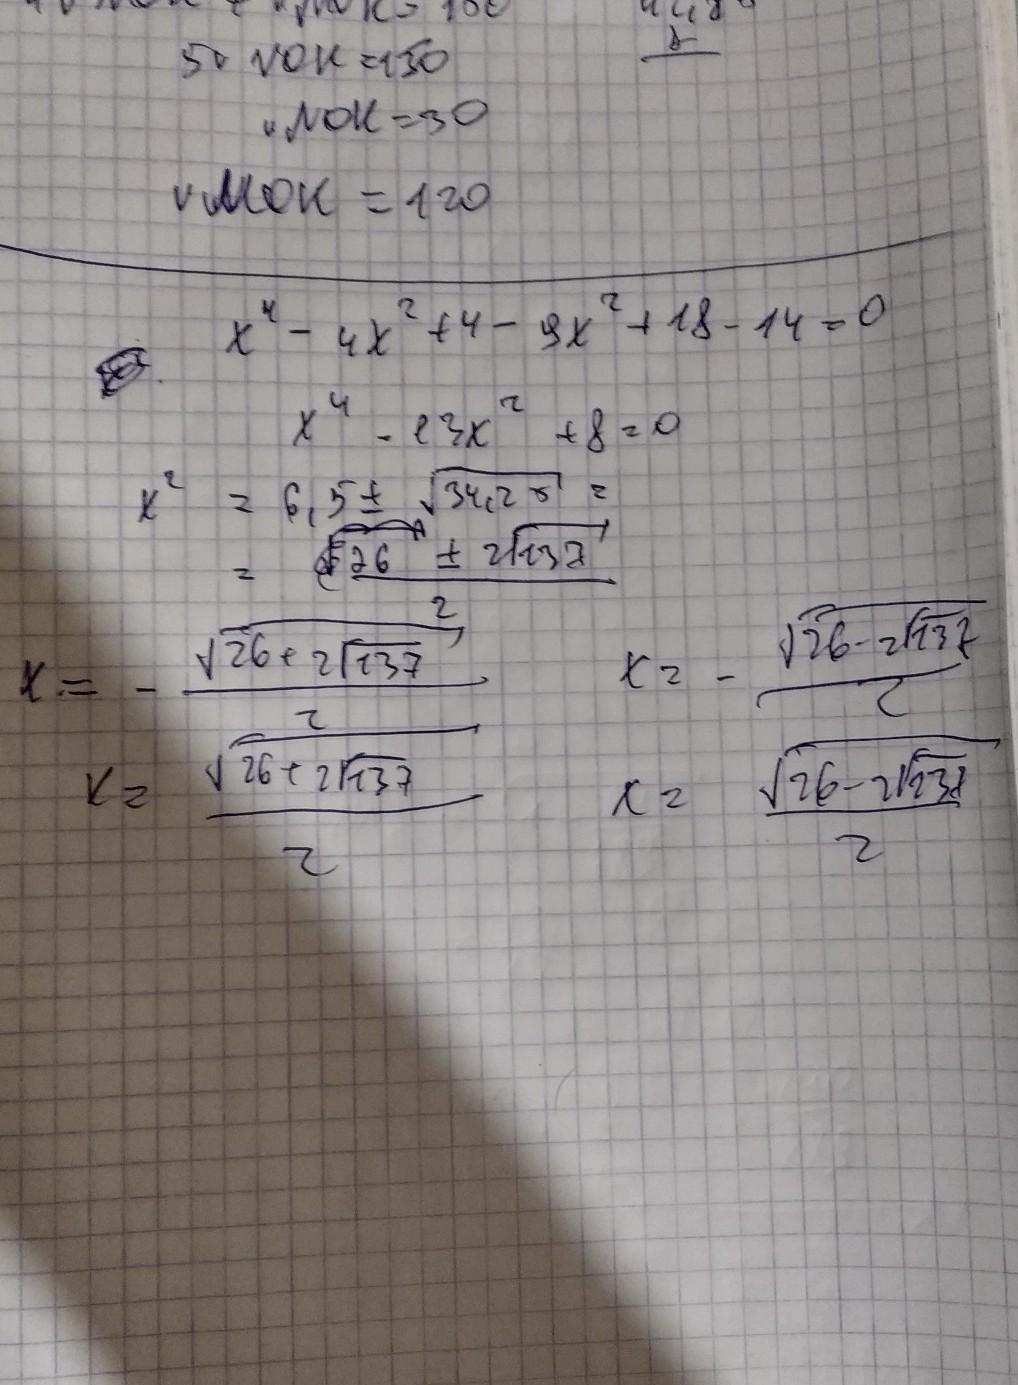 5∠NOK=150
∠NOK=30
∠MOK=120
x⁴-4x²+4-9x²+18-14=0
x⁴-13x²+8=0
x²=6,5±√34,25=
=(26±2√137)/2
x=-√(26+2√137)/2 x=-√(26-2√137)/2
x=√(26+2√137)/2 x=√(26-2√137)/2